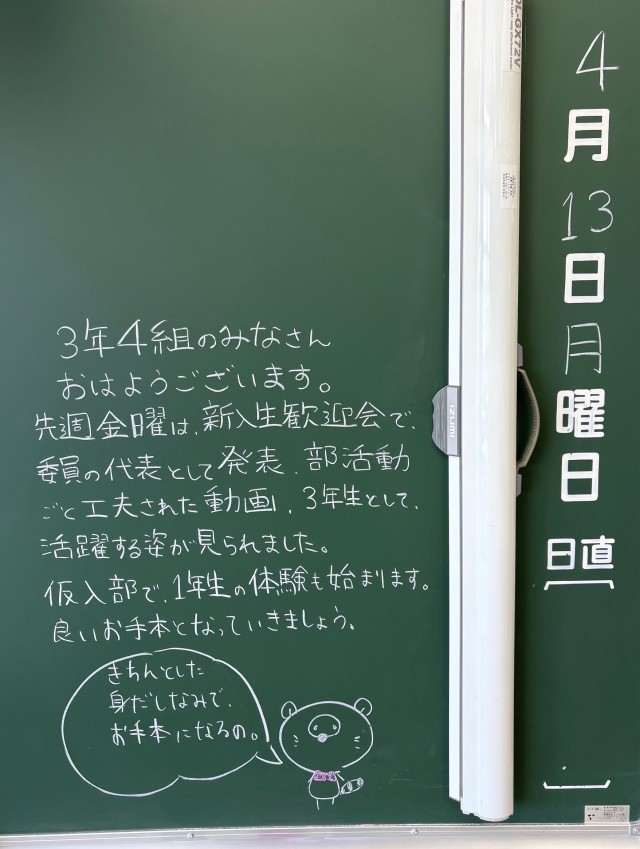 3年4組のみなさん
おはようございます。
先週金曜は、新入生歓迎会で、
委員の代表として発表、部活動
ごと工夫された動画、3年生として、
活躍する姿が見られました。
仮入部で、1年生の体験も始まります。
良いお手本となっていきましょう。
きちんとした
身だしなみで、
お手本になるの。
IZUMI
DL-GX72V
4
月
13
日
月
曜
日
日直